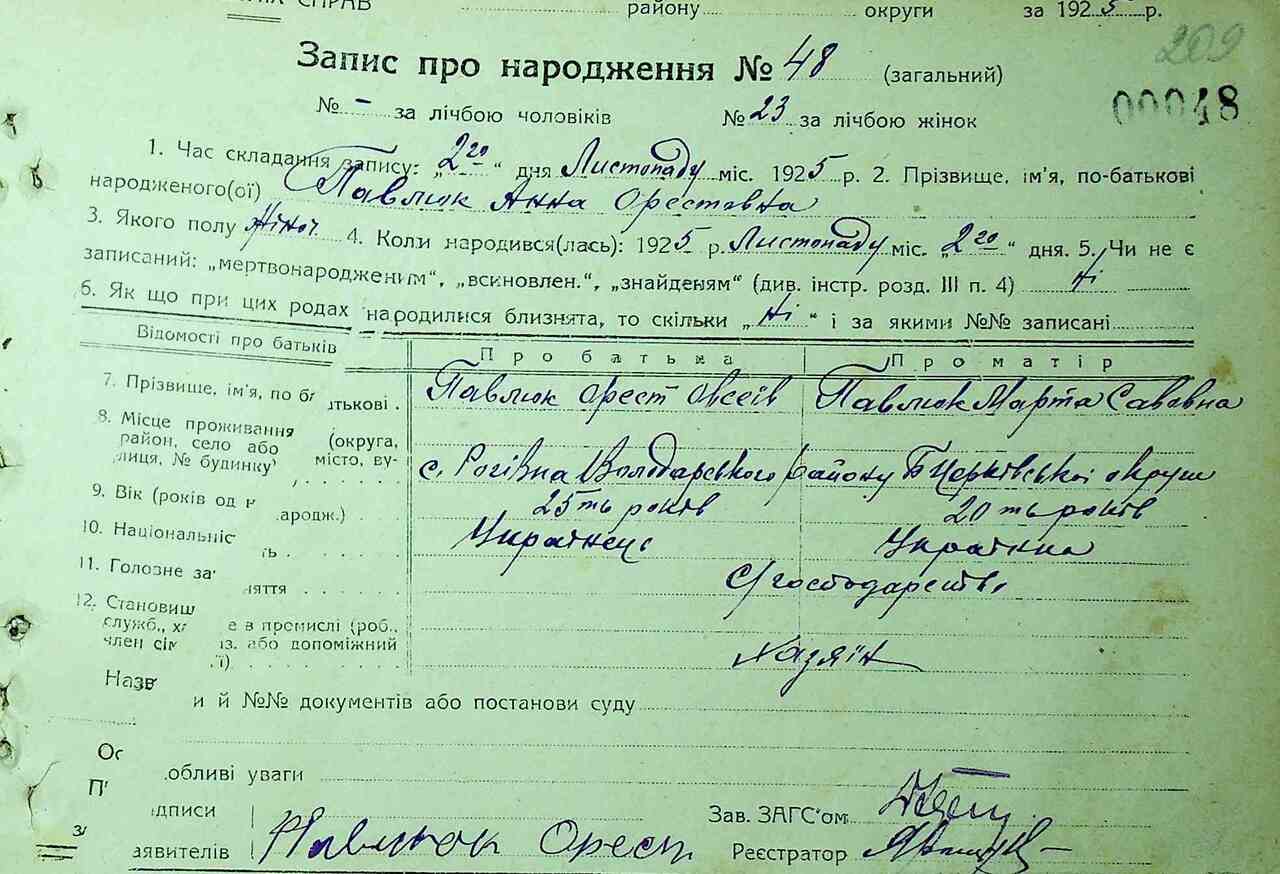 району округи за 1925 р.
209
Запис про народження № 48 (загальний)
00048
№ - за лічбою чоловіків № 23 за лічбою жінок
1. Час складання запису: „2го“ дня Листопаду міс. 1925 р. 2. Прізвище, ім'я, по-батькові
народженого(ої) Павлюк Анна Орестовна
3. Якого полу жіноч. 4. Коли народився(лась): 1925 р. Листопаду міс. „2го“ дня. 5. Чи не є
записаний: „мертвонародженим“, „всиновлен.“, „знайденям“ (див. інстр. розд. III п. 4) Ні
6. Як що при цих родах народилися близнята, то скільки „Ні“ і за якими №№ записані
Відомості про батьків Про батька Про матір
7. Прізвище, ім'я, по батькові. Павлюк Орест Овсеів Павлюк Марта Саввовна
8. Місце проживання (округа,
район, село або місто, ву-
лиця, № будинку) с. Рогізна Володарського району Б Церківської округи
9. Вік (років од народж.) 25ть років 20ть років
10. Національність Українець Українка
11. Головне заняття С/господарство
12. Становище в промислі (роб.,
служб., хаз. або допоміжний
член сім'ї). Хазяїн
Назви й №№ документів або постанови суду
Особливі уваги
Підписи Зав. ЗАГС'ом
заявителів Павлюк Орест Реєстратор